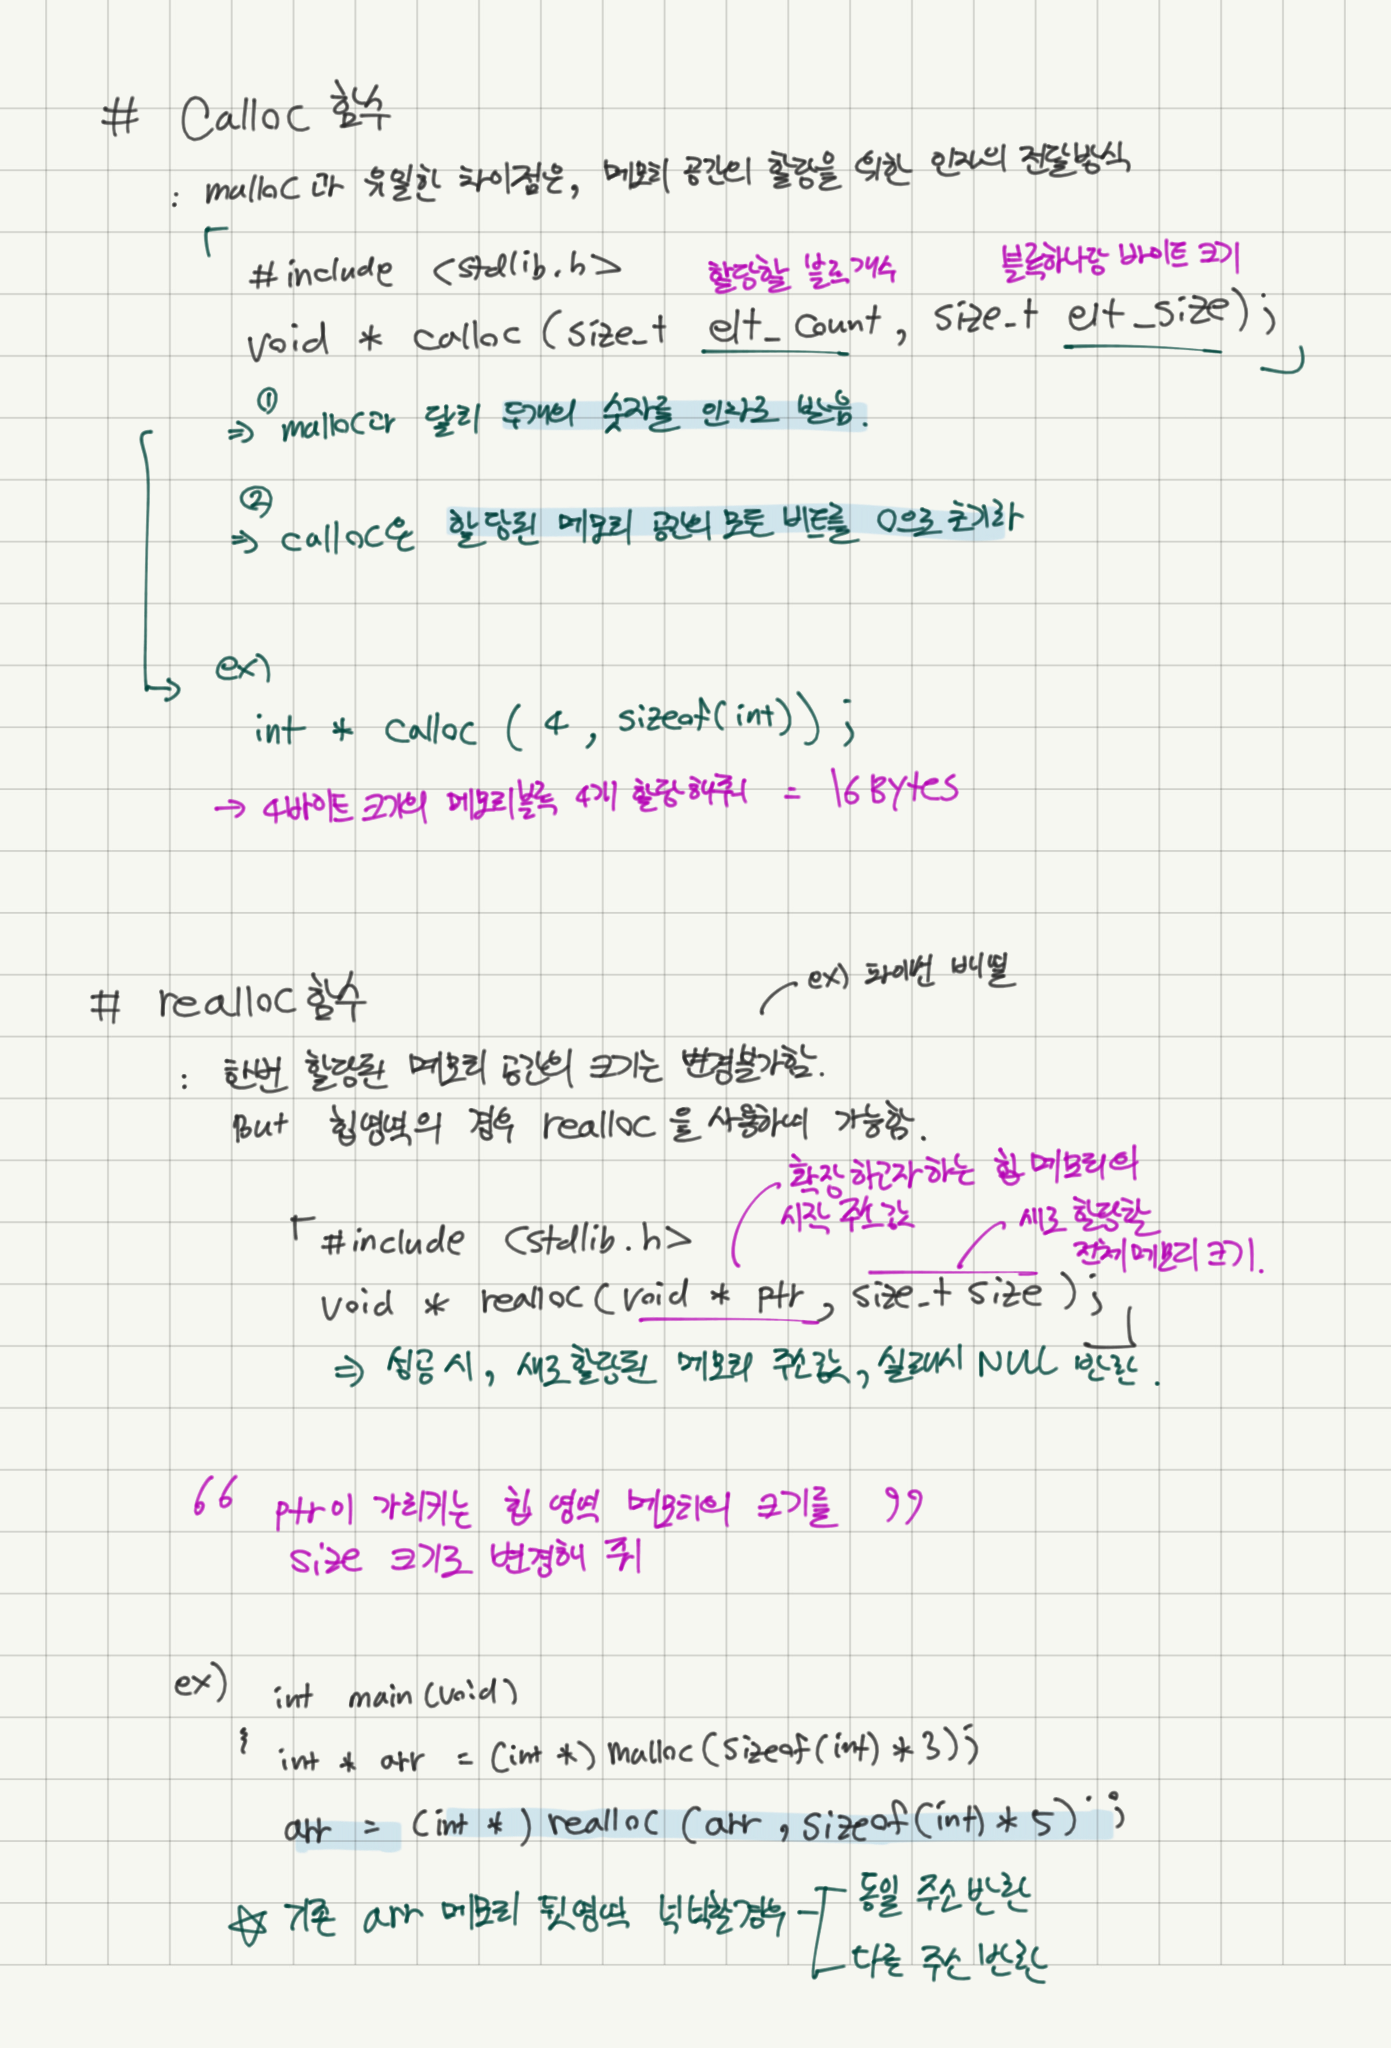 # Calloc 함수
: malloc과 유일한 차이점은, 메모리 공간의 할당을 위한 인자의 전달방식
#include <stdlib.h>
할당할 블로개수
블록하나당 바이트 크기
void * calloc (size_t elt_count, size_t elt_size);
① ⇒ malloc과 달리 두개의 숫자를 인자로 받음.
② ⇒ calloc은 할당된 메모리 공간의 모든 비트를 0으로 초기화
ex)
int * calloc ( 4 , sizeof(int)) ;
→ 4바이트 크기의 메모리블록 4개 할당해줘 = 16 Bytes
# realloc 함수
ex) 파이썬 배열
: 한번 할당된 메모리 공간의 크기는 변경불가함.
But 힙영역의 경우 realloc을 사용하여 가능함.
확장하고자하는 힙 메모리의
시작 주소값
새로 할당할
전체메모리 크기.
#include <stdlib.h>
void * realloc(void * ptr, size_t size );
⇒ 성공시, 새로할당된 메모리 주소값, 실패시 NULL 반환.
“ ptr이 가리키는 힙 영역 메모리의 크기를 ”
size 크기로 변경해 줘
ex) int main(void)
{
int * arr = (int *) malloc(sizeof(int) * 3);
arr = (int * ) realloc (arr , sizeof(int) * 5) ;
☆ 기존 arr 메모리 뒷영역 넉넉할경우
동일 주소 반환
다른 주소 반환